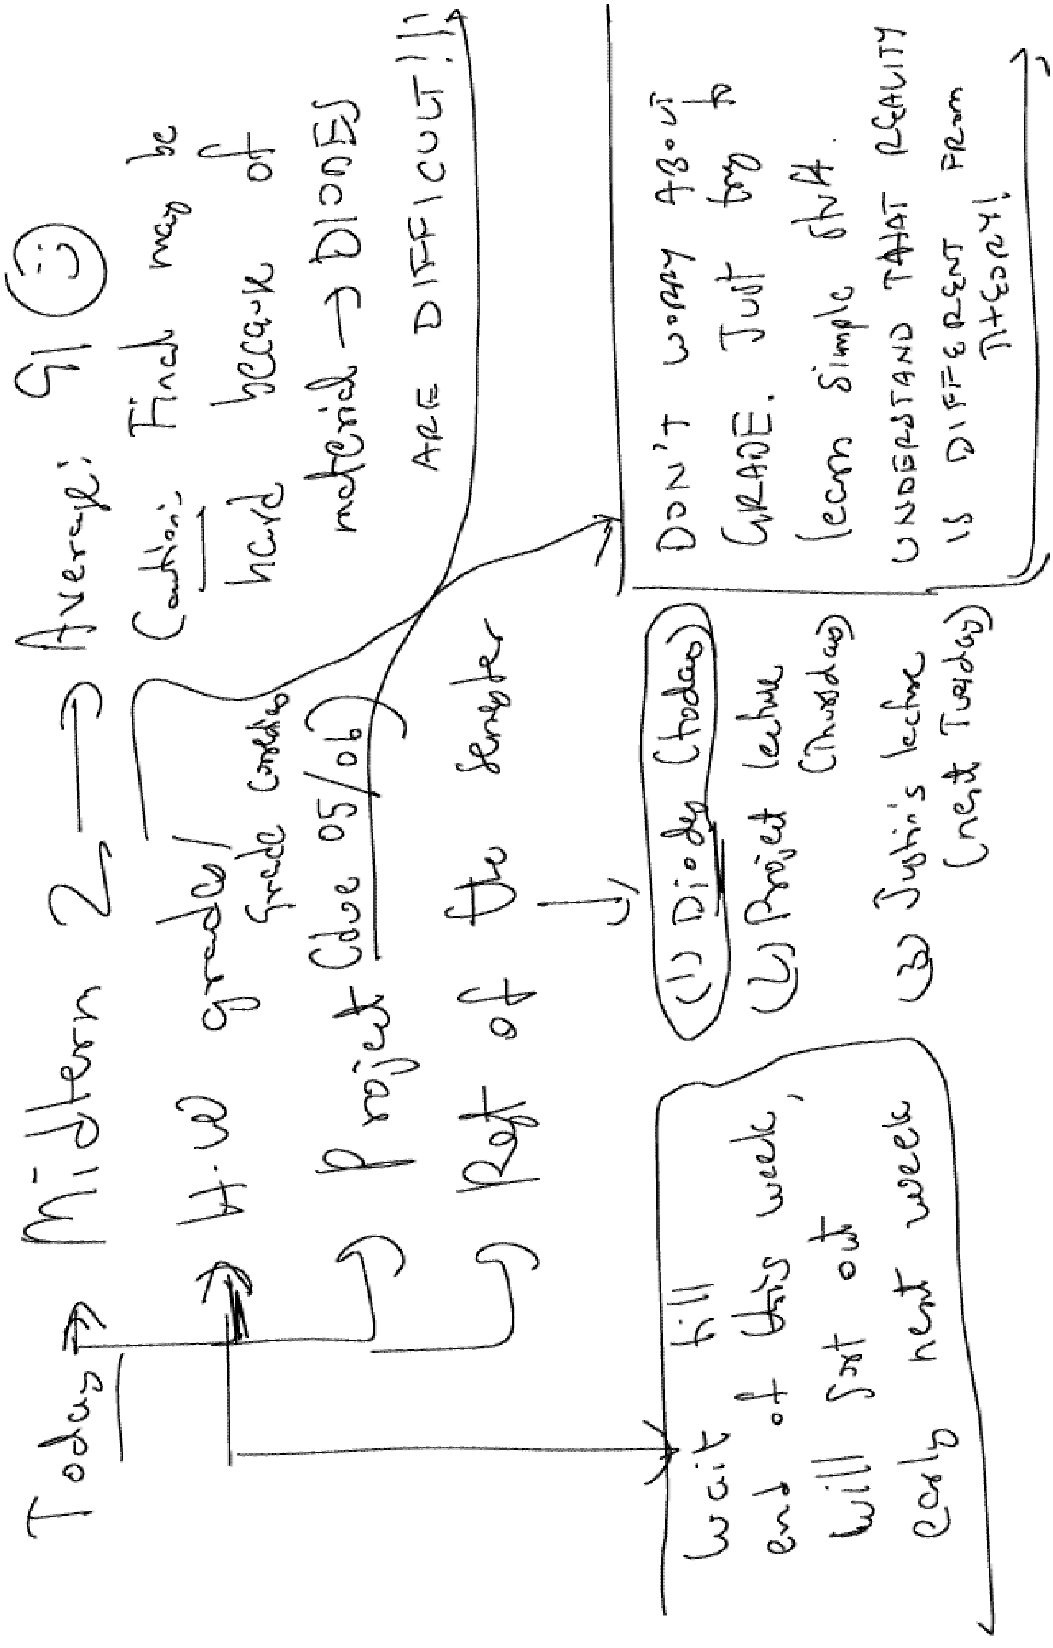 Today → Midterm 2 → Average: 91 ☺
Caution: Final may be
hard because of
material → DIODES
ARE DIFFICULT!!!
→ H.W grades/
grade
Project (due 05/06)
Rest of the semester
↓
(1) Diodes (today)
(2) Project lecture
(Thursday)
(3) Justin's lecture
(next Tuesday)
Wait till
end of this week,
will sort out
early next week
DON'T WORRY ABOUT
GRADE. Just try to
learn simple stuff.
UNDERSTAND THAT REALITY
IS DIFFERENT FROM
THEORY!